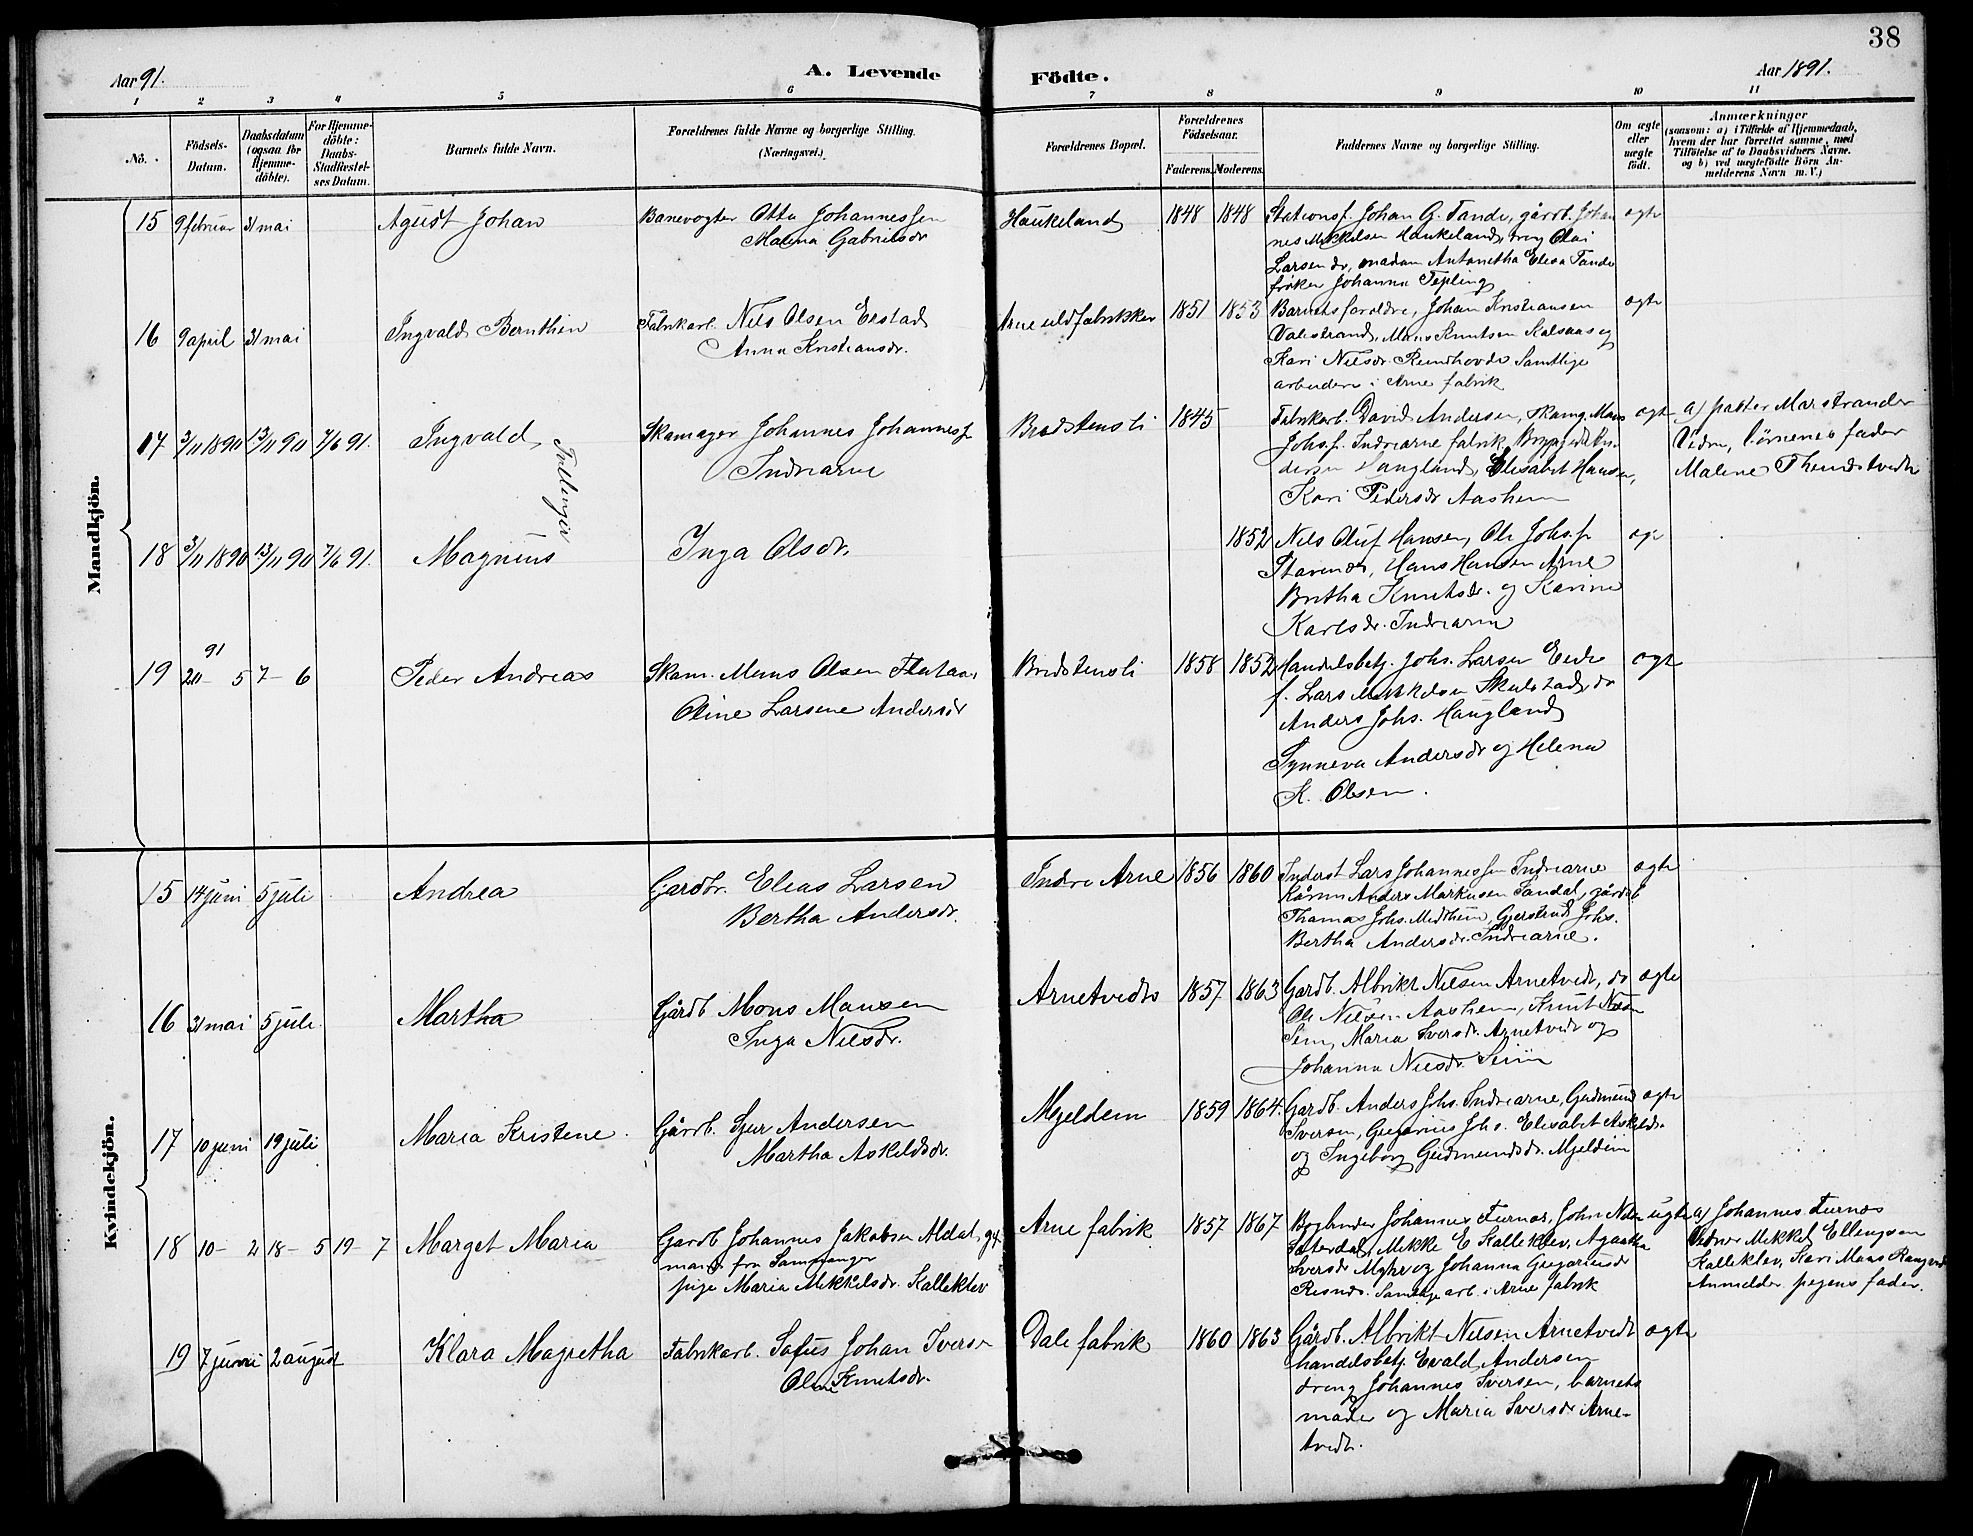 38
Aar 91.
A. Levende
Födte.
Aar 1891.
1 2 3 4 5 6 7 8 9 10 11
No.
Födsels-Datum.
Daabsdatum (ogsaa for Hjemme-döbte).
For Hjemme-döbte: Daabs-Stadfæstel-ses Datum.
Barnets fulde Navn.
Forældrenes fulde Navne og borgerlige Stilling. (Næringsvei.)
Forældrenes Bopæl.
Forældrenes Födselsaar.
Faderens. Moderens.
Faddernes Navne og borgerlige Stilling.
Om ægte eller uægte födt.
Anmærkninger
(saasom: a) i Tilfælde af Hjemmedaab, hvem der har forrettet samme, med Tilföielse af to Daabsvidners Navne. og b) ved uægtefödte Börn An-melderens Navn m. V.)
Mandkjön.
15 9 februar 31 mai Agust Johan
Banevogter Otto Johannessen
Malena Gabrielsdr
Haukeland 1848 1848
Stationsf. Johan G. Tande, gårdb. Johan
nes Mikkelsen Haukeland, dreng Olai
Larsen do, madam Antonetha Elesa Tande
frøken Johanna Tepling
ægte
16 9 april 31 mai Ingvald Bernthin
Fabrikarb. Nils Olsen Erstad
Anna Kristiansdr.
Arne uldfabrikker 1851 1853
Barnets foraldre, Johan Kristiansen
Valestrand, Mons Knutsen Kalsaas og
Kari Nilsdr. Rundhovde Samtlige
arbeidere i Arne fabrik
ægte
17 3/11 1890 13/11 90 7/6 91. Ingvald
Tvillinger
Skomager Johannes Johannesf
Indrearne
Bredstensli 1845
Fabrikarb. David Andersen, Skomg. Mons
Johs.f. Indrearne fabrik,
Haugland, Elisabet Hansen,
Kari Pedersdr Aasheim
ægte
a) pastor Marstrander
Vidne, börnenes fader
Malene Thunestvedt
18 3/11 1890 13/11 90 7/6 91. Magnus
Inga Olsdr.
1852
Nils Oluf Hansen, Ole Johs.f
Hans Hansen Arne
Britha Knutsdr. og Karine
Karlsdr. Indrearne
19 20 - 5 91 7 - 6 Peder Andreas
Skom. Mons Olsen Flataas
Oline Larsene Andersdr
Bredstensli 1858 1852
Handelsbetj. Johs. Larsen Eide
f. Lars Mikkelsen Skulstad, do
Anders Johs. Haugland
Synneva Andersdr og Helena
K. Olsen.
ægte
Kvindekjön.
15 14 juni 5 juli Andrea
Gardbr. Elias Larsen
Bertha Andersdr.
Indre Arne 1856 1860
Inderst Lars Johannessen Indrearne
Anders Markusen Sandal, gårdb
Thomas Johs. Midtheim, Gjertrud Johs.
Bertha Andersdr. Indrearne.
ægte
16 31 mai 5 juli Martha
Gårdb Mons Monsen
Inga Nilsdr.
Arnetvedt 1857 1863
Gardb. Albrikt Nilsen Arnetvedt, do
Ole Nilsen Aasheim, Knut Nilsen
Seim, Maria Iversdr. Arnetvedt og
Johanna Nilsdr. Seim
ægte
17 10 juni 19 juli Maria Kristene.
Gårdb. Sjur Andersen
Martha Askeldsdr.
Mjeldem 1859 1864.
Gardb. Anders Johs. Indrearne, Gudmund
Iversen, Gregorius Johs. Elisabet Askeldsdr.
og Ingeborg Gudmundsdr. Mjeldeim
ægte
18 10 - 2 18 - 5 19 - 7 Marget Maria
Gardb Johannes Jakobsen Aldal, gift
mand fra Samnanger
pige Maria Mikkelsdr. Kalleklev
Arne fabrik 1857 1867
Bogbinder Johannes Furnæs, John Nilsen
Sæterdal, Mikkel E Kalleklev, Agaatha
Iversdr Myhre og Johanna Gregoriusdr
Risnes. Samtlige arb. i Arne fabrik
uægte
a) Johannes Furnæs
Vidner Mikkel Ellingsen
Kalleklev, Kari Mons
Anmelder pigens fader.
19 7 juni 2 august Klara Magretha
Fabrikarb. Sofus Johan Iversen
Oline Knutsdr.
Dale fabrik 1860 1863
Gårdb. Albrikt Nilsen Arnetvedt
handelsbetj. Evald Andersen
dreng Johannes Iversen, barnets
moder og Maria Iversdr Arne-
tvedt.
ægte